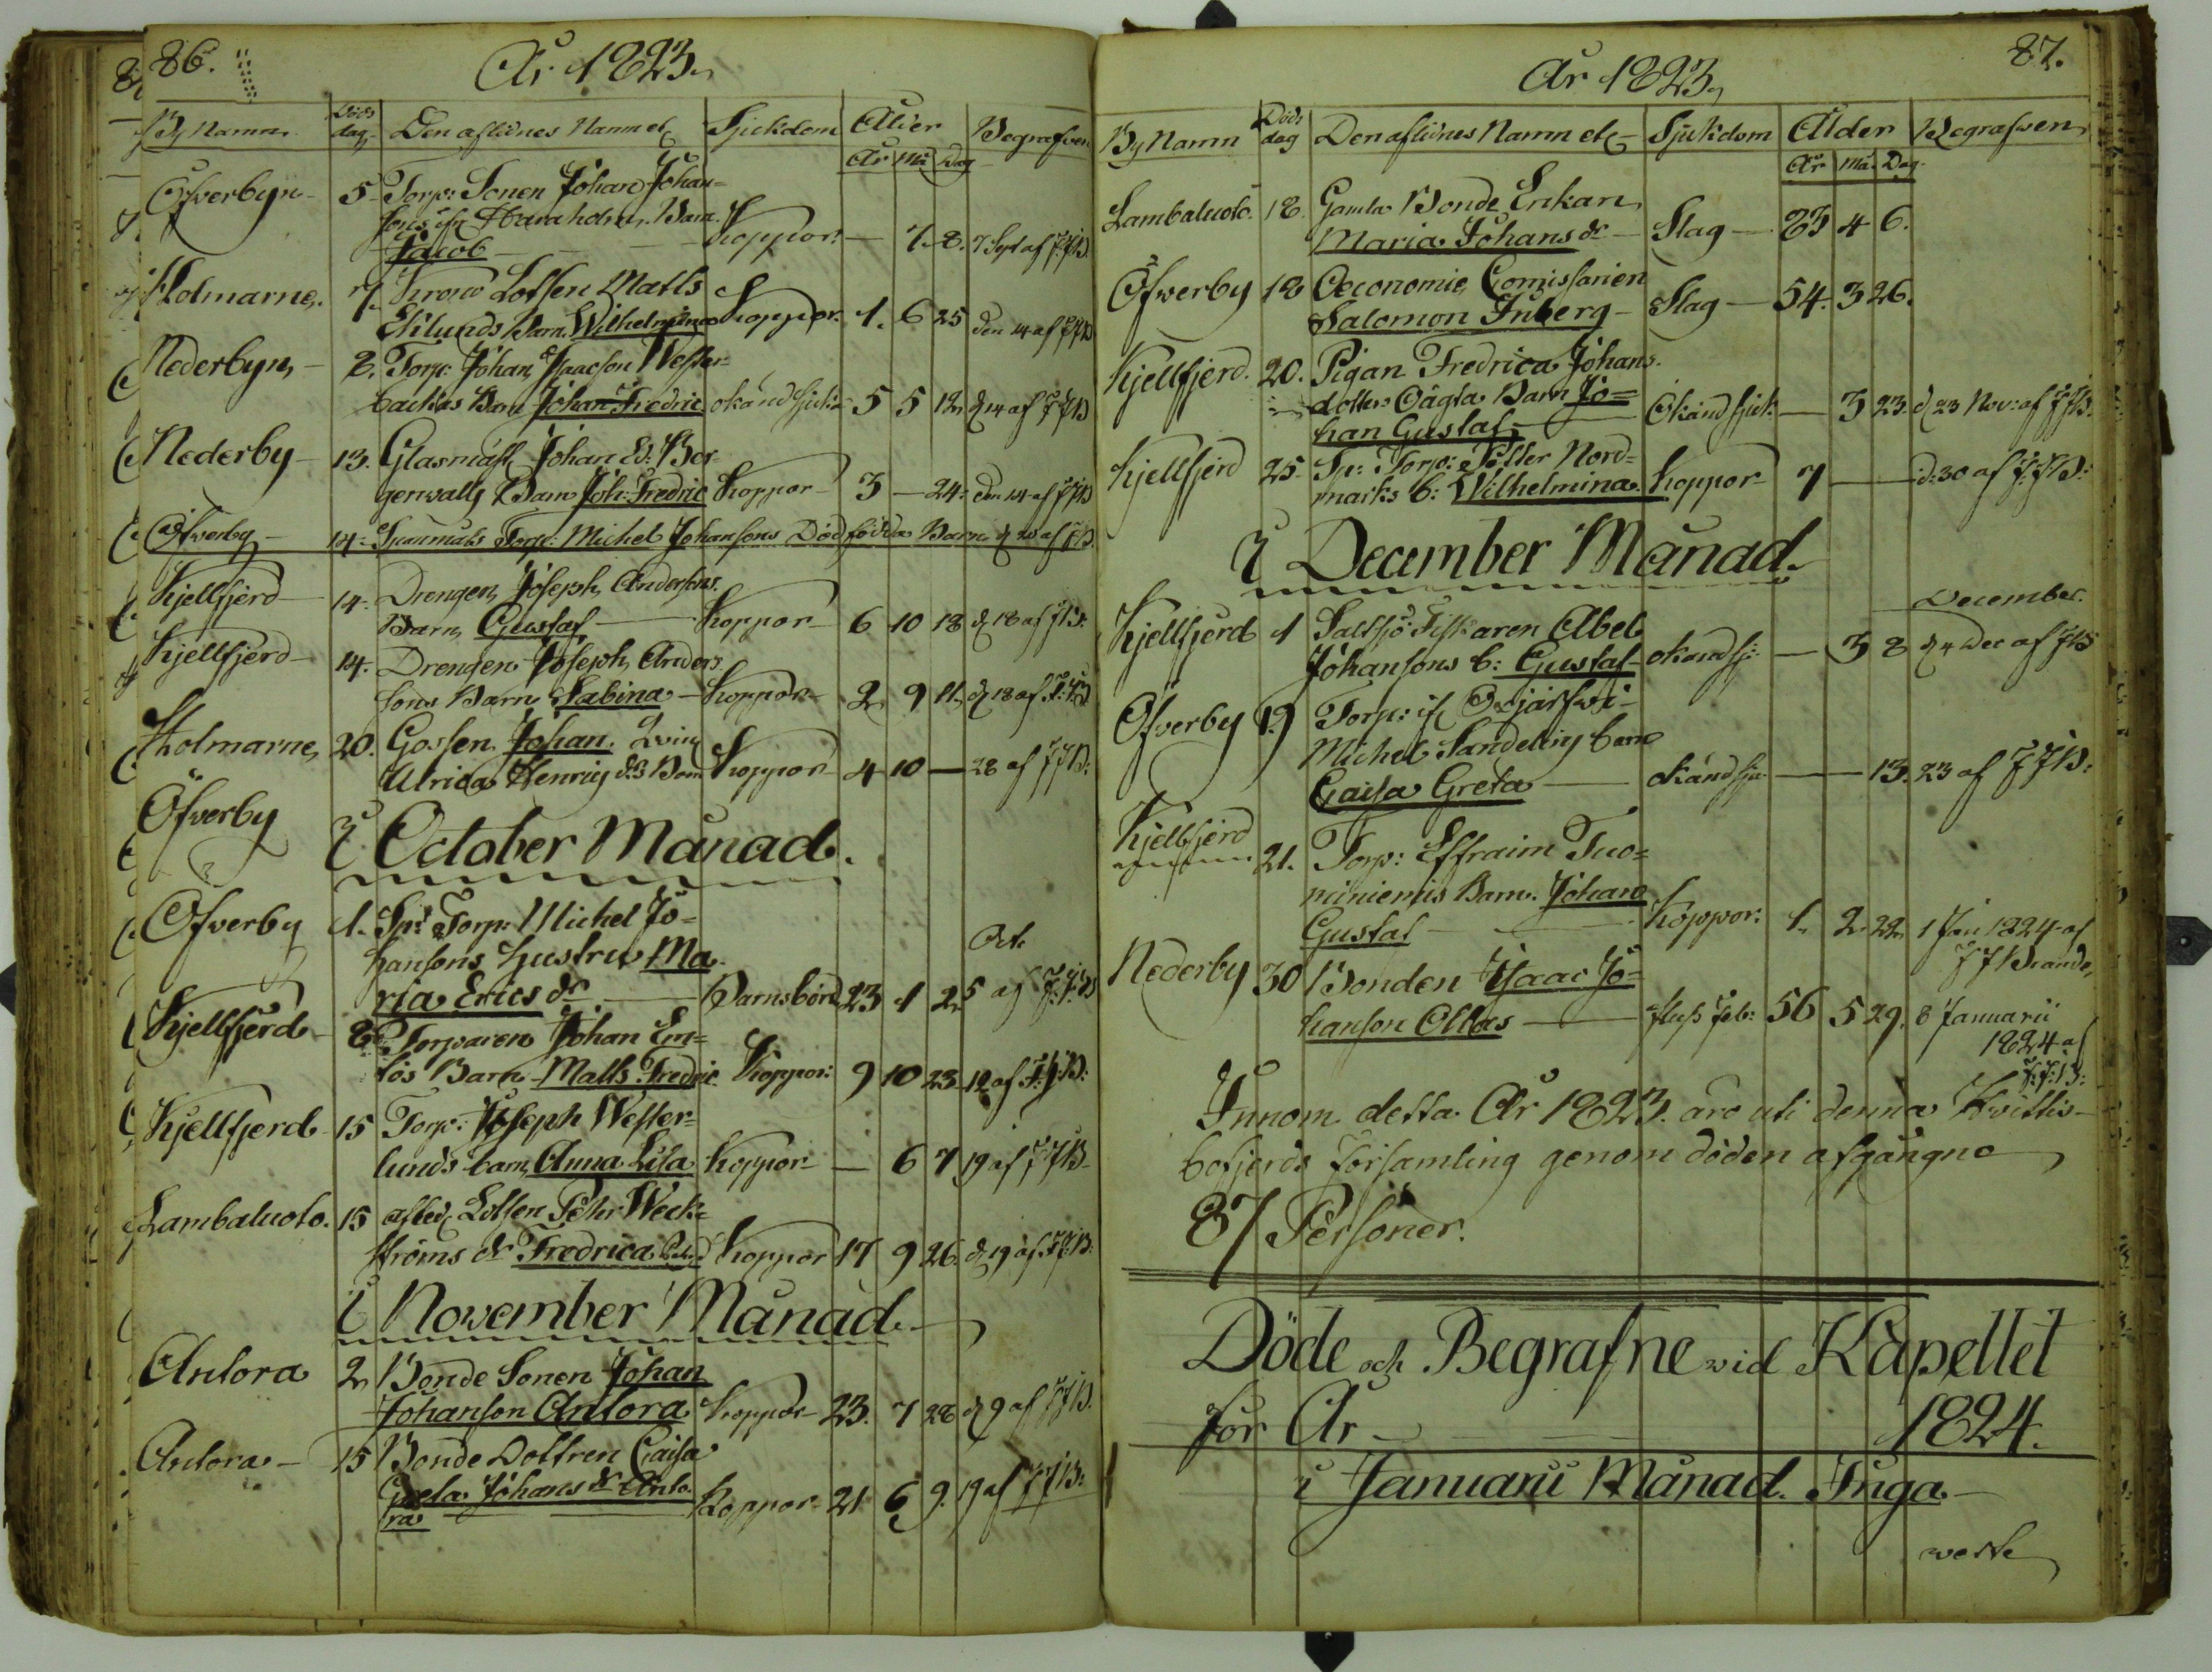 86.
År 1823.
By Namn Döds dag Den aflidnes Namn etc Sjukdom Ålder Begrafven
År Må Dag
Öfverbyn 5 Torp: Sonen Johan Johan=
sons ifr Haraholm Barn
Jacob Koppor — 7. 8. 7 Sept af J:J:B:
Holmarne 7. Krono Lotsen Matts
Eklunds Barn Wilhelmina Koppor 1. 6 25 den 14 af JJB
Nederbyn 8. Torp: Johan Isaacson Wester=
backas Barn Johan Fredric okänd sjuk: 5 5 12 d 14 af JJB
Nederby 13. Glasmäst Johan Ed: Ber
genwalls Barn Joh: Fredric Koppor 3 — 24 den 14 af JJB
Öfverby 14. Torp: Michel Johansons Död födda Barn d 20 af JJB
Kjellfjerd 14. Drengen Joseph Andersons
Barn Gustaf Koppor 6 10 18 d 18 af JJB:
Kjellfjerd 14. Drengen Joseph Anders
sons Barn Sabina Koppor 2 9 11 d 18 af J:J:B
Holmarne 20. Gossen Johan. Qvin
Ulrica Henrics drs Barn Koppor 4 10 — 28 af JJB:
Öfverby
i October Månad.
Öfverby 1. Sp: Torp: Michel Jo=
hansons hustru Ma Oct.
ria Erics dr Barnsbörd 23 1 2 5 af J:J:B
Kjellfjerd 8 Torparen Johan Em=
lös Barn Matts Fredric Koppor: 9 10 23 12 af J:J:B:
Kjellfjerd 15 Torp: Joseph Wester=
lunds barn Anna Lisa Koppor — 6 7 19 af JJB
Lambaluoto. 15 afled Lotsen Petter Weck=
ströms dr Fredrica Koppor 17 9 26 d 19 af JJB:
i November Månad
Anlora 2 Bonde Sonen Johan
Johanson Anlora Koppor 23. 7 28 d 9 af JJB.
Anlora 15 Bonde Dottren Caisa
Greta Johans dr Anlo=
ra Koppor 21 6 9. 19 af JJB:
År 1823, 87.
By Namn Döds dag Den aflidnes Namn etc Sjukdom Ålder Begrafven
År Må Dag
Lambaluoto. 18. Gamla Bonde Enkan
Maria Johans dr Slag 83 4 6.
Öfverby 18 Oeconomie Comissarien
Salomon Inberg Slag 54. 3 26.
Kjellfjerd. 20. Pigan Fredrica Johans
dotters Oägta Barn Jo=
han Gustaf Okänd sjuk: — 3 23. d 23 Nov: af JJB:
Kjellfjerd 25. Sp: Torp: Petter Nord=
marks b: Wilhelmina Koppor 7 — d: 30 af J:J:B:
i December Månad.
December
Kjellfjerd 1 Saltsjö Fiskaren Abel
Johansons b: Gustaf okänd sj: — 3 8 d 4 Dec af JJB
Öfverby 19 Torp:
Michel Sandeling barn
Caisa Greta okänd sju — 13. 23 af JJB:
Kjellfjerd 21. Torp: Effraim Tuo=
miniemis Barn Johan
Gustaf Koppor: 1. 2 22 1 Jan 1824 af
JJ Brander
Nederby 30 Bonden Isaac Jo=
hanson Ollas fluss feb: 56 5 29. 8 Januarii
1824 af
J:J:B:
Innom detta År 1823. äro uti denna Kvittis=
bofjerds församling genom döden afgångne
87 Personer.
Döde och Begrafne vid Kapellet
för År 1824.
i Januarii Månad. Inga